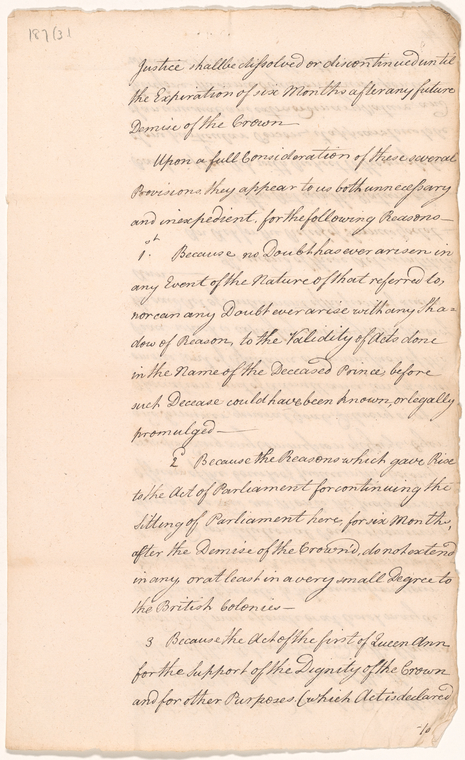 187(3)
Justice shall be dissolved or discontinued until
the Expiration of six Months after any future
Demise of the Crown—
Upon a full Consideration of these several
Provisions, they appear to us both unnecessary
and inexpedient, for the following Reasons—
1st. Because, no Doubt has ever arisen in
any Event of the Nature of that referred to,
nor can any Doubt ever arise with any Sha=
dow of Reason, to the Validity of Acts done
in the Name of the Deceased Prince, before
such Decease could have been known, or legally
promulged—
2d. Because the Reasons which gave Rise
to the Act of Parliament for continuing the
Sitting of Parliament here, for six Months,
after the Demise of the Crown, do not extend
in any or at least in a very small Degree to
the British Colonies—
3 Because the Act of the first of Queen Ann
for the Support of the Dignity of the Crown
and for other Purposes (which Act is declared